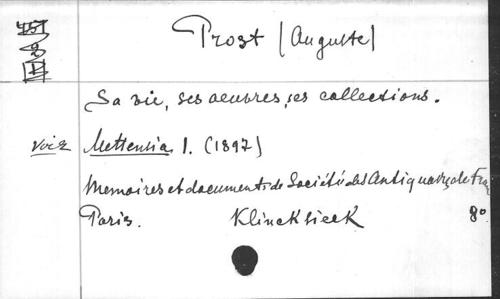 Prost (Auguste)
Sa vie, ses oeuvres, ses collections.
voir Mettensia I. (1897)
Memoires et documents de Société des Antiquaires de Fra
Paris. Klincksieck 80.